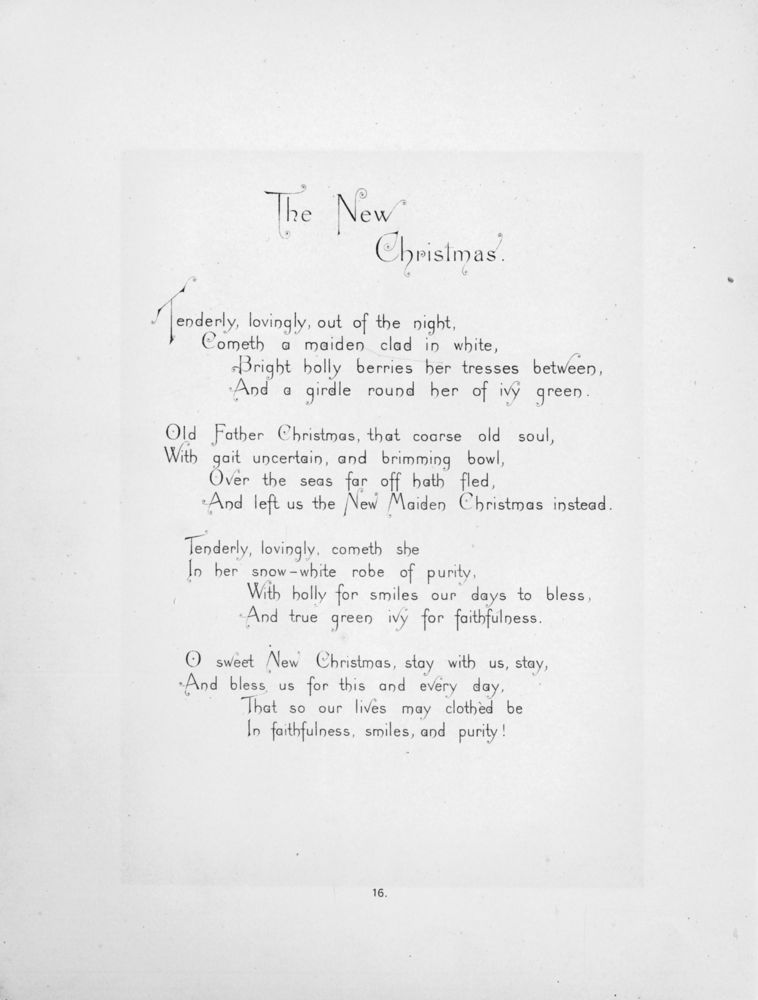 The New
Christmas.
Tenderly, lovingly, out of the night,
Cometh a maiden clad in white,
Bright holly berries her tresses between,
And a girdle round her of ivy green.
Old Father Christmas, that coarse old soul,
With gait uncertain, and brimming bowl,
Over the seas far off hath fled,
And left us the New Maiden Christmas instead.
Tenderly, lovingly, cometh she
In her snow-white robe of purity,
With holly for smiles our days to bless,
And true green ivy for faithfulness.
O sweet New Christmas, stay with us, stay,
And bless us for this and every day,
That so our lives may clothèd be
In faithfulness, smiles, and purity!
16.